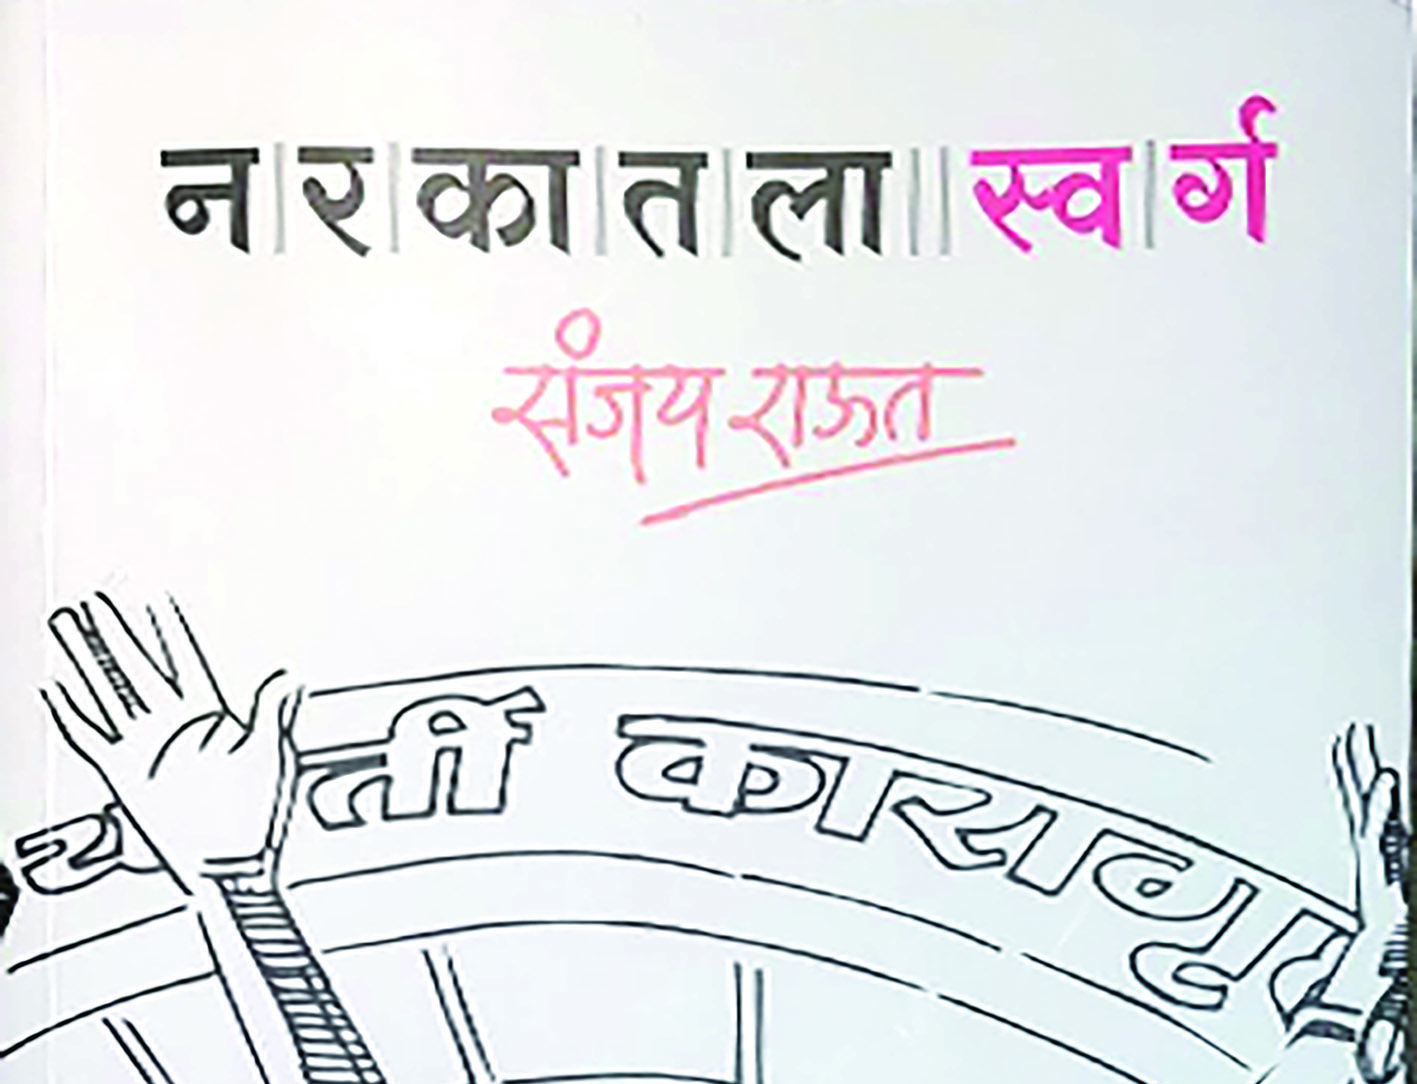 नरकातला स्वर्ग
संजय राऊत
कारागृ